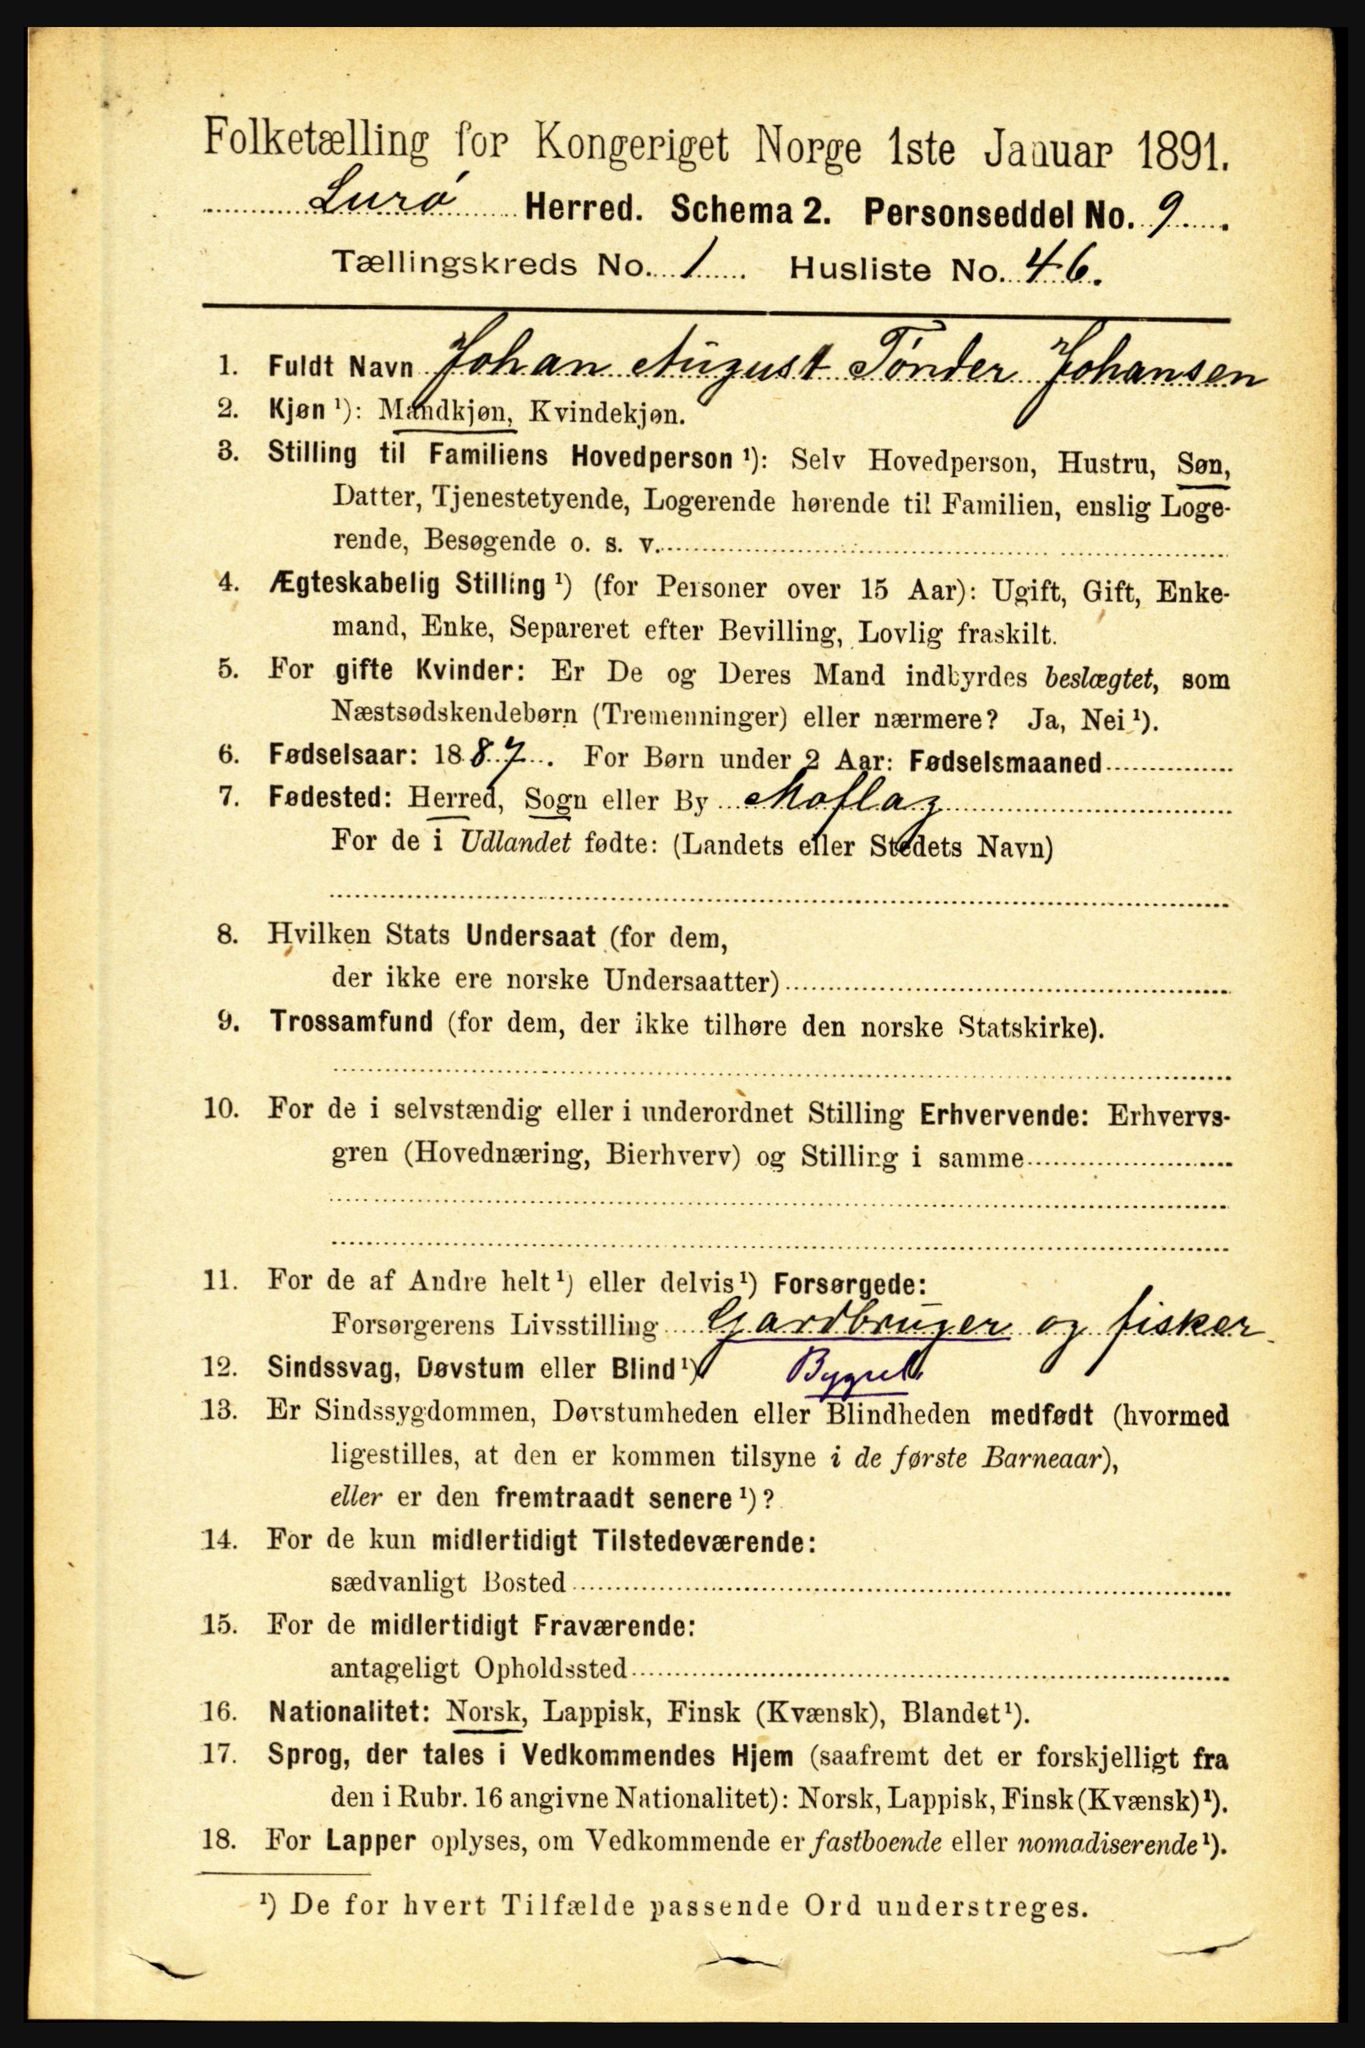 Folketælling for Kongeriget Norge 1ste Januar 1891.
Lurö Herred. Schema 2. Personseddel No. 9
Tællingskreds No. 1 Husliste No. 46.
1. Fuldt Navn Johan August Tönder Johansen
2. Kjøn ¹): Mandkjøn, Kvindekjøn.
3. Stilling til Familiens Hovedperson ¹): Selv Hovedperson, Hustru, Søn,
Datter, Tjenestetyende, Logerende hørende til Familien, enslig Loge-
rende, Besøgende o. s. v.
4. Ægteskabelig Stilling ¹) (for Personer over 15 Aar): Ugift, Gift, Enke-
mand, Enke, Separeret efter Bevilling, Lovlig fraskilt.
5. For gifte Kvinder: Er De og Deres Mand indbyrdes beslægtet, som
Næstsødskendebørn (Tremenninger) eller nærmere? Ja, Nei ¹).
6. Fødselsaar: 1887. For Børn under 2 Aar: Fødselsmaaned
7. Fødested: Herred, Sogn eller By Moflag
For de i Udlandet fødte: (Landets eller Stedets Navn)
8. Hvilken Stats Undersaat (for dem,
der ikke ere norske Undersaatter)
9. Trossamfund (for dem, der ikke tilhøre den norske Statskirke).
10. For de i selvstændig eller i underordnet Stilling Erhvervende: Erhvervs-
gren (Hovednæring, Bierhverv) og Stilling i samme
11. For de af Andre helt ¹) eller delvis ¹) Forsørgede:
Forsørgerens Livsstilling Gardbruger og fisker.
12. Sindssvag, Døvstum eller Blind ¹) Bygsel.
13. Er Sindssygdommen, Døvstumheden eller Blindheden medfødt (hvormed
ligestilles, at den er kommen tilsyne i de første Barneaar),
eller er den fremtraadt senere ¹)?
14. For de kun midlertidigt Tilstedeværende:
sædvanligt Bosted
15. For de midlertidigt Fraværende:
antageligt Opholdssted
16. Nationalitet: Norsk, Lappisk, Finsk (Kvænsk), Blandet ¹).
17. Sprog, der tales i Vedkommendes Hjem (saafremt det er forskjelligt fra
den i Rubr. 16 angivne Nationalitet): Norsk, Lappisk, Finsk (Kvænsk) ¹).
18. For Lapper oplyses, om Vedkommende er fastboende eller nomadiserende ¹).
¹) De for hvert Tilfælde passende Ord understreges.